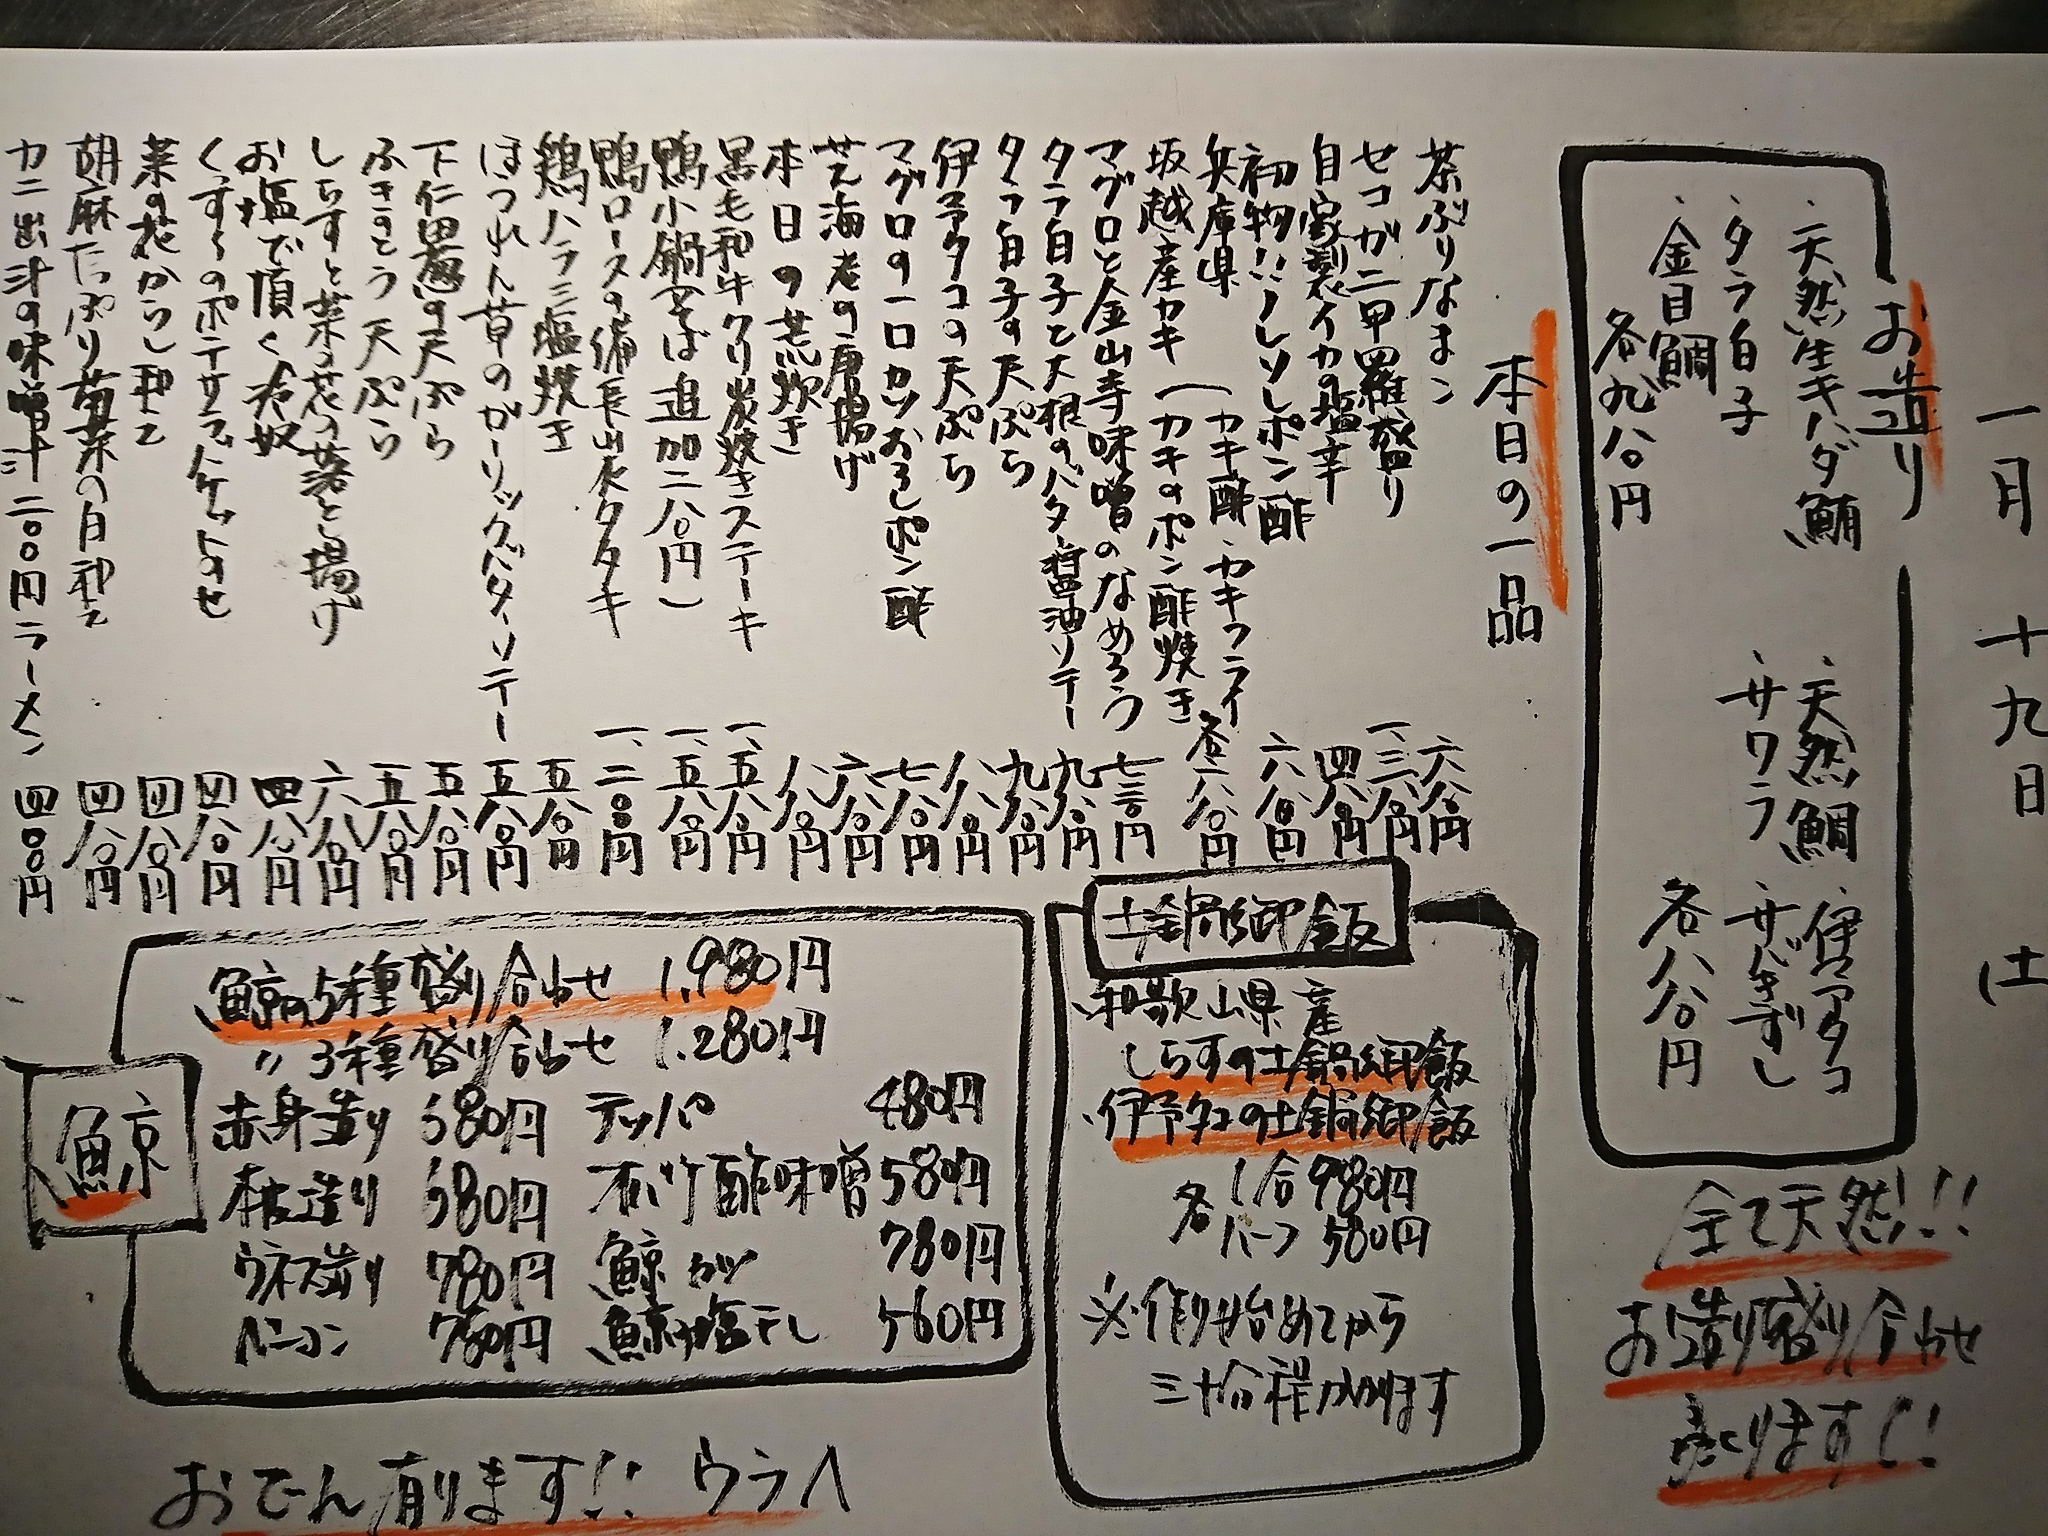 一月 十九日 (土
お造り
・天然生キハダ鮪
・タラ白子
・金目鯛
各九八〇円
・天然鯛
・サワラ
・伊予タコ
・サバきずし
各八八〇円
全て天然!!
お造り盛り合わせ
承ります!!
本日の一品
茶ぶりなまこ 六八〇円
セコガニ甲羅盛り 一、三八〇円
自家製イカの塩辛 四八〇円
初物!!ノレソレポン酢 六八〇円
兵庫県 (カキ酢・カキフライ
坂越産カキ (カキのポン酢焼き 各六八〇円
マグロと金山寺味噌のなめろう 七三〇円
タラ白子と大根のバター醤油ソテー 九八〇円
タラ白子の天ぷら 九八〇円
伊予タコの天ぷら 八八〇円
マグロの一口カツおろしポン酢 七八〇円
芝海老の唐揚げ 六八〇円
本日の荒炊き 八八〇円
黒毛和牛クリ炭焼きステーキ 一、五八〇円
鴨小鍋(そば追加二八〇円) 一、五八〇円
鴨ロースの備長山水タタキ 一、二〇〇円
鶏ハラミ塩焼き 五八〇円
ほうれん草のガーリックバターソテー 五八〇円
下仁田葱の天ぷら 五八〇円
ふきのとう天ぷら 五八〇円
しらすと菜の花の落とし揚げ 六八〇円
お塩で頂く冷奴 四八〇円
くずしのポテサラ 四八〇円
菜の花からし和え 四八〇円
胡麻たっぷり菊菜の白和え 四八〇円
カニ出汁の味噌汁二〇〇円ラーメン 四〇〇円
土鍋御飯
・和歌山県産
しらすの土鍋御飯
・伊予タコの土鍋御飯
各 1合980円
ハーフ 580円
※作り始めてから
三十分程かかります
鯨
鯨の5種盛り合わせ 1,980円
〃 3種盛り合わせ 1,280円
赤身造り 680円 テッパ 480円
本皮造り 680円 酢味噌 580円
ウネス造り 780円 鯨カツ 780円
ベーコン 780円 鯨の塩干し 560円
おでん有ります!! ウラへ